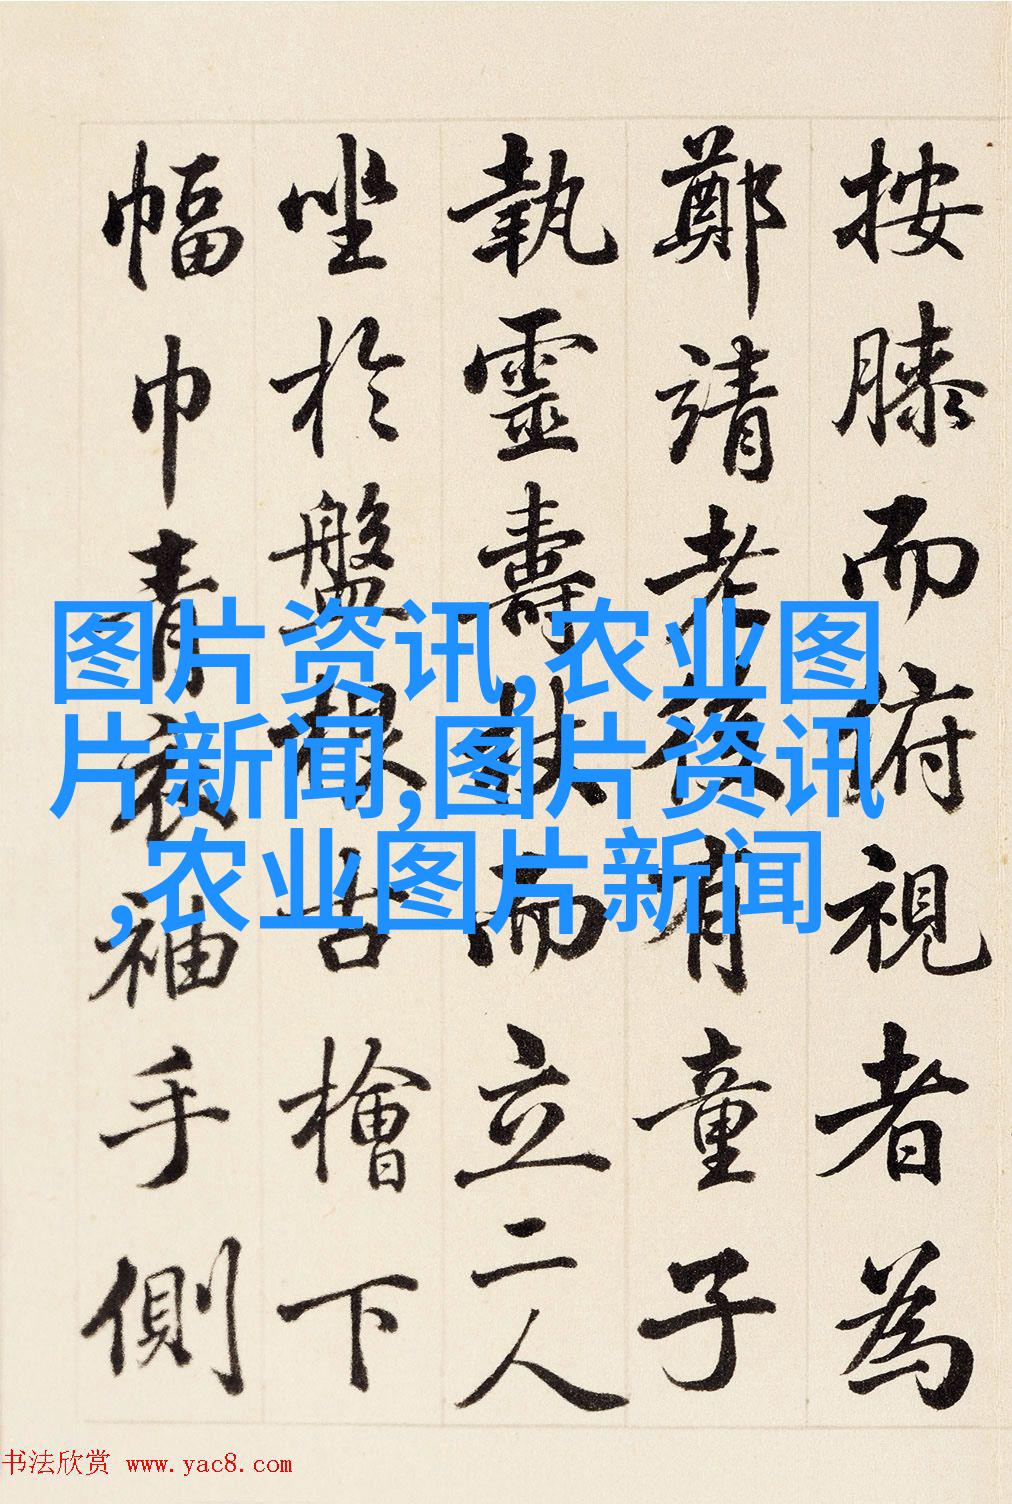 按膝而俯視者為
鄭靖老後有童子
執靈壽杖而立二人
坐於盤根古檜下
幅巾青衣袖手側
图片资讯,农业图
片新闻,图片资讯
,农业图片新闻
书法欣赏 www.yac8.com